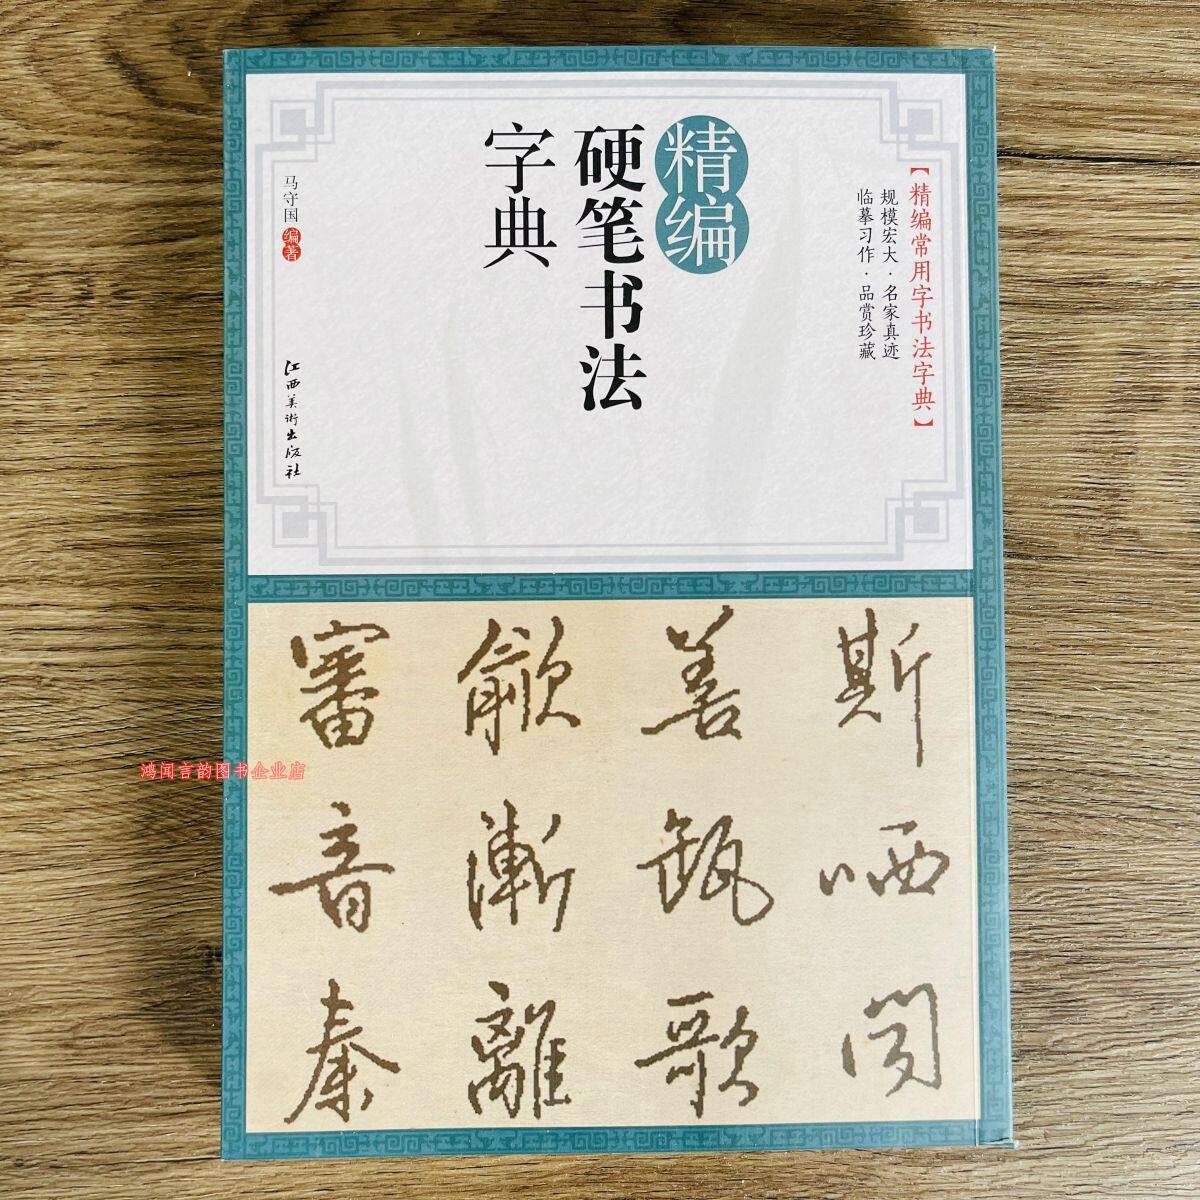 【精编常用字书法字典】
规模宏大·名家真迹
临摹习作·品赏珍藏
精编
硬笔书法
字典
马守国 编著
江西美術出版社
斯哂闵
善瓿歌
歙漸離
審音秦
鸿闻言韵图书企业店